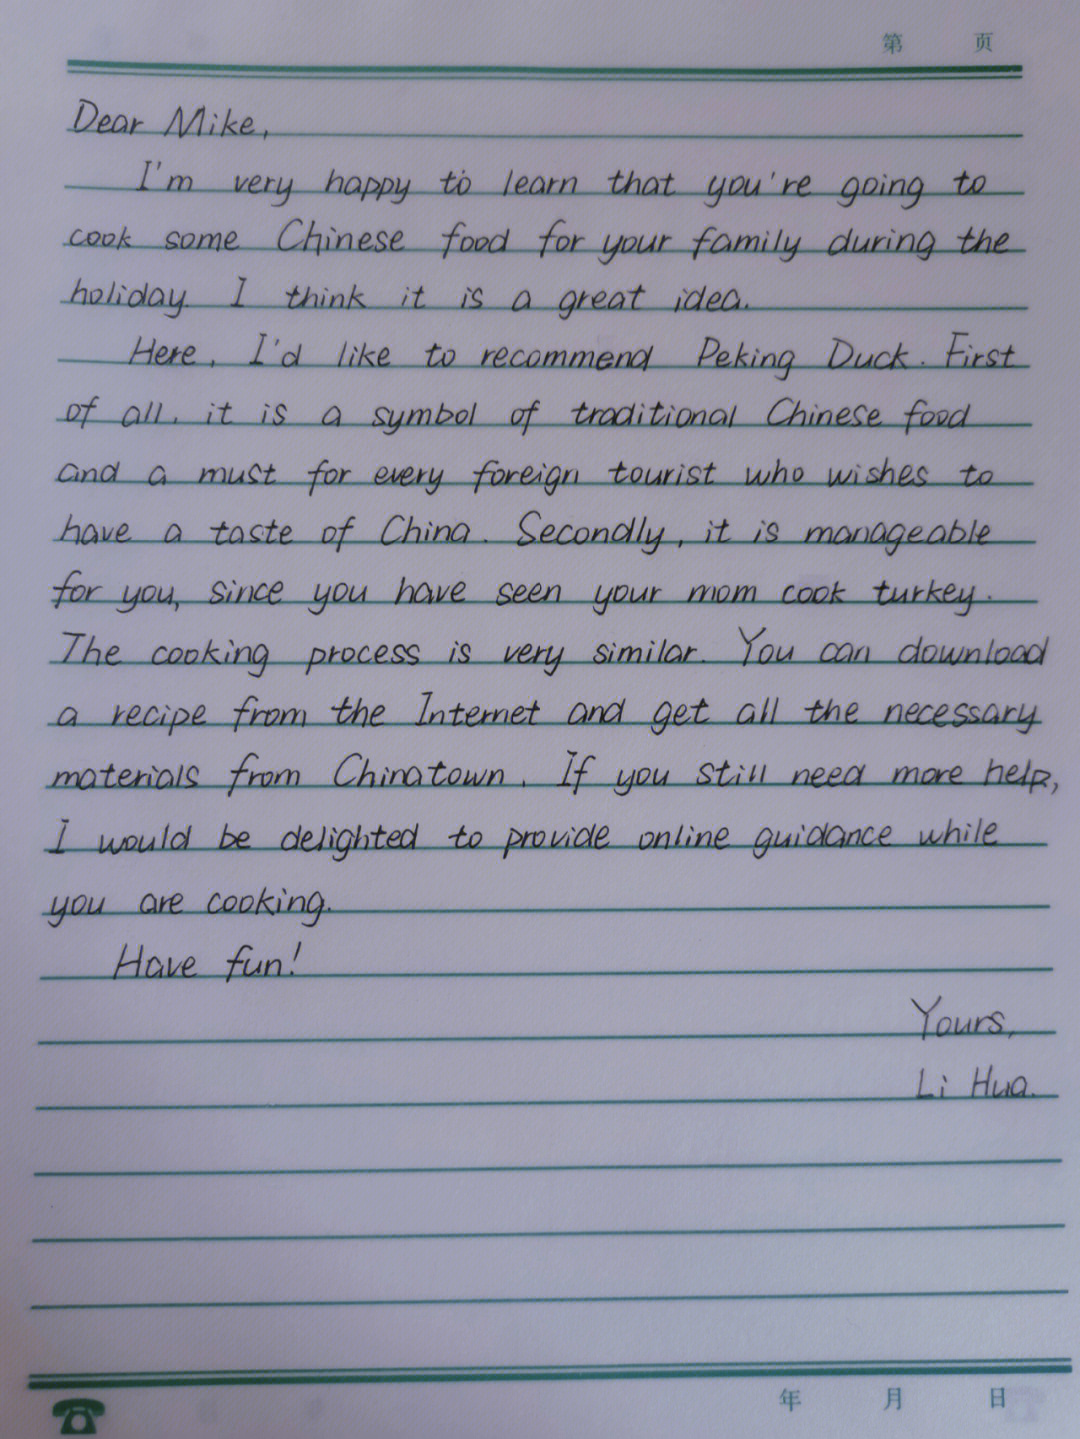 第 页
Dear Mike,
I'm very happy to learn that you're going to
cook some Chinese food for your family during the
holiday. I think it is a great idea.
Here, I'd like to recommend Peking Duck. First
of all, it is a symbol of traditional Chinese food
and a must for every foreign tourist who wishes to
have a taste of China. Secondly, it is manageable
for you, since you have seen your mom cook turkey.
The cooking process is very similar. You can download
a recipe from the Internet and get all the necessary
materials from Chinatown. If you still need more help,
I would be delighted to provide online guidance while
you are cooking.
Have fun!
Yours,
Li Hua.
年 月 日